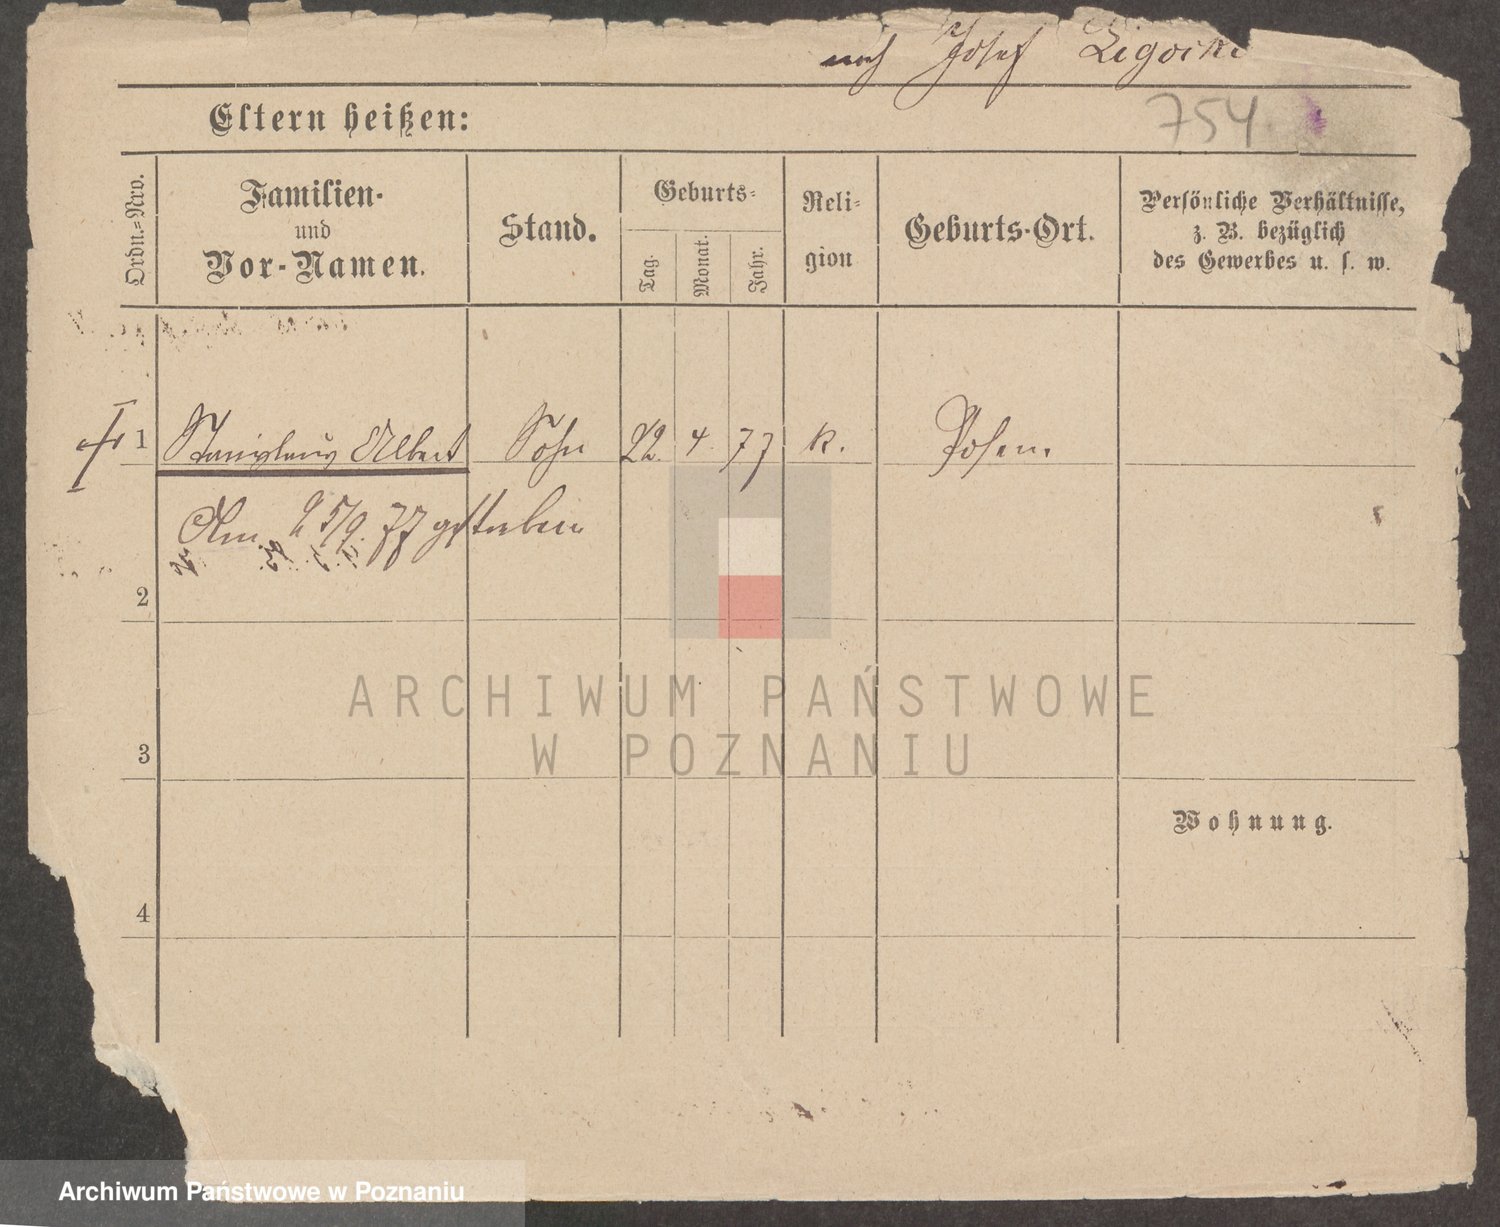 noch Josef Ligocki
754.
Eltern heißen:
Ordn.-Nro.
Familien-
und
Vor-Namen.
Stand.
Geburts-
Tag.
Monat.
Jahr.
Reli-
gion
Geburts-Ort.
Persönliche Verhältnisse,
z. B. bezüglich
des Gewerbes u. s. w.
1 Stanislaus Albert Sohn 22. 4 77 K. Posen.
Am 25/9 77 gestorben
2
3
Wohnung.
4
ARCHIWUM PAŃSTWOWE
W POZNANIU
Archiwum Państwowe w Poznaniu